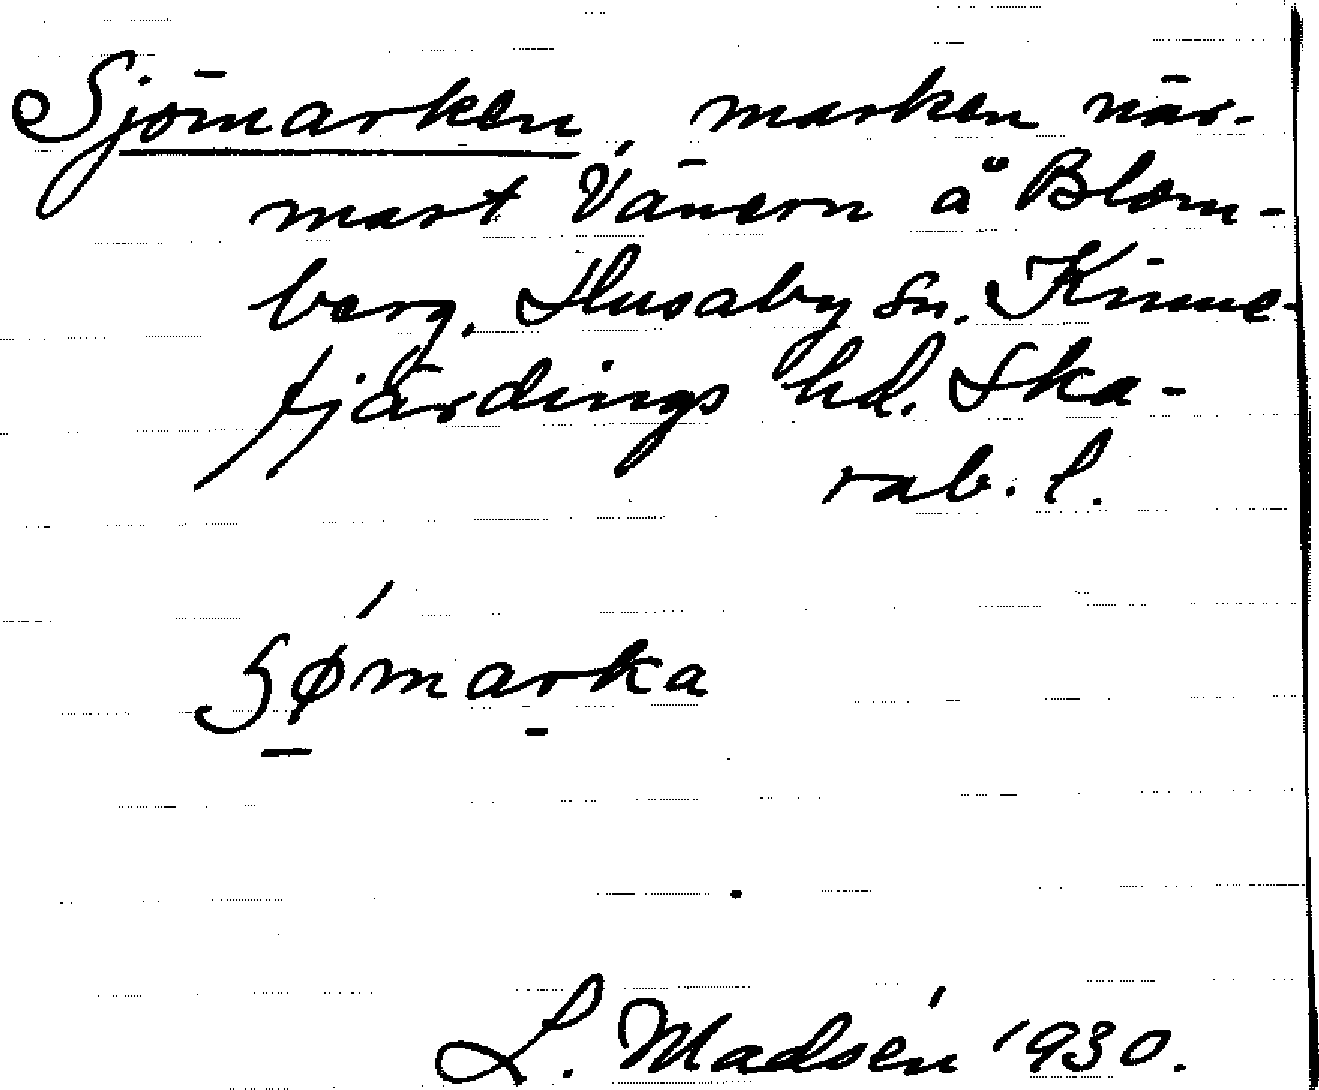 Sjömarken, marken när-
mast Vänern å Blom-
berg. Husaby sn. Kinne-
fjärdings hd. Ska-
rab. l.
Sǿmarka
L. Madsén 1930.